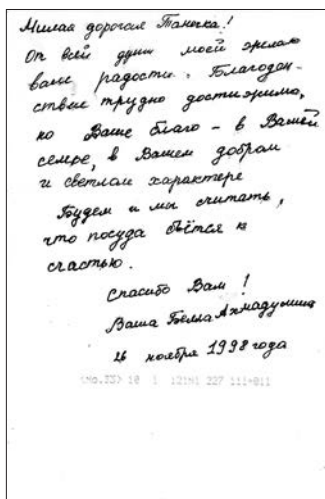 Милая дорогая Танечка!
От всей души моей желаю
вам радости. Благоден-
ствие трудно достижимо,
но Ваше благо – в Вашей
семье, в Вашем добром
и светлом характере
Будем и мы считать,
что посуда бьётся к
счастью.
Спасибо Вам!
Ваша Белла Ахмадулина
26 ноября 1998 года
10 1 227